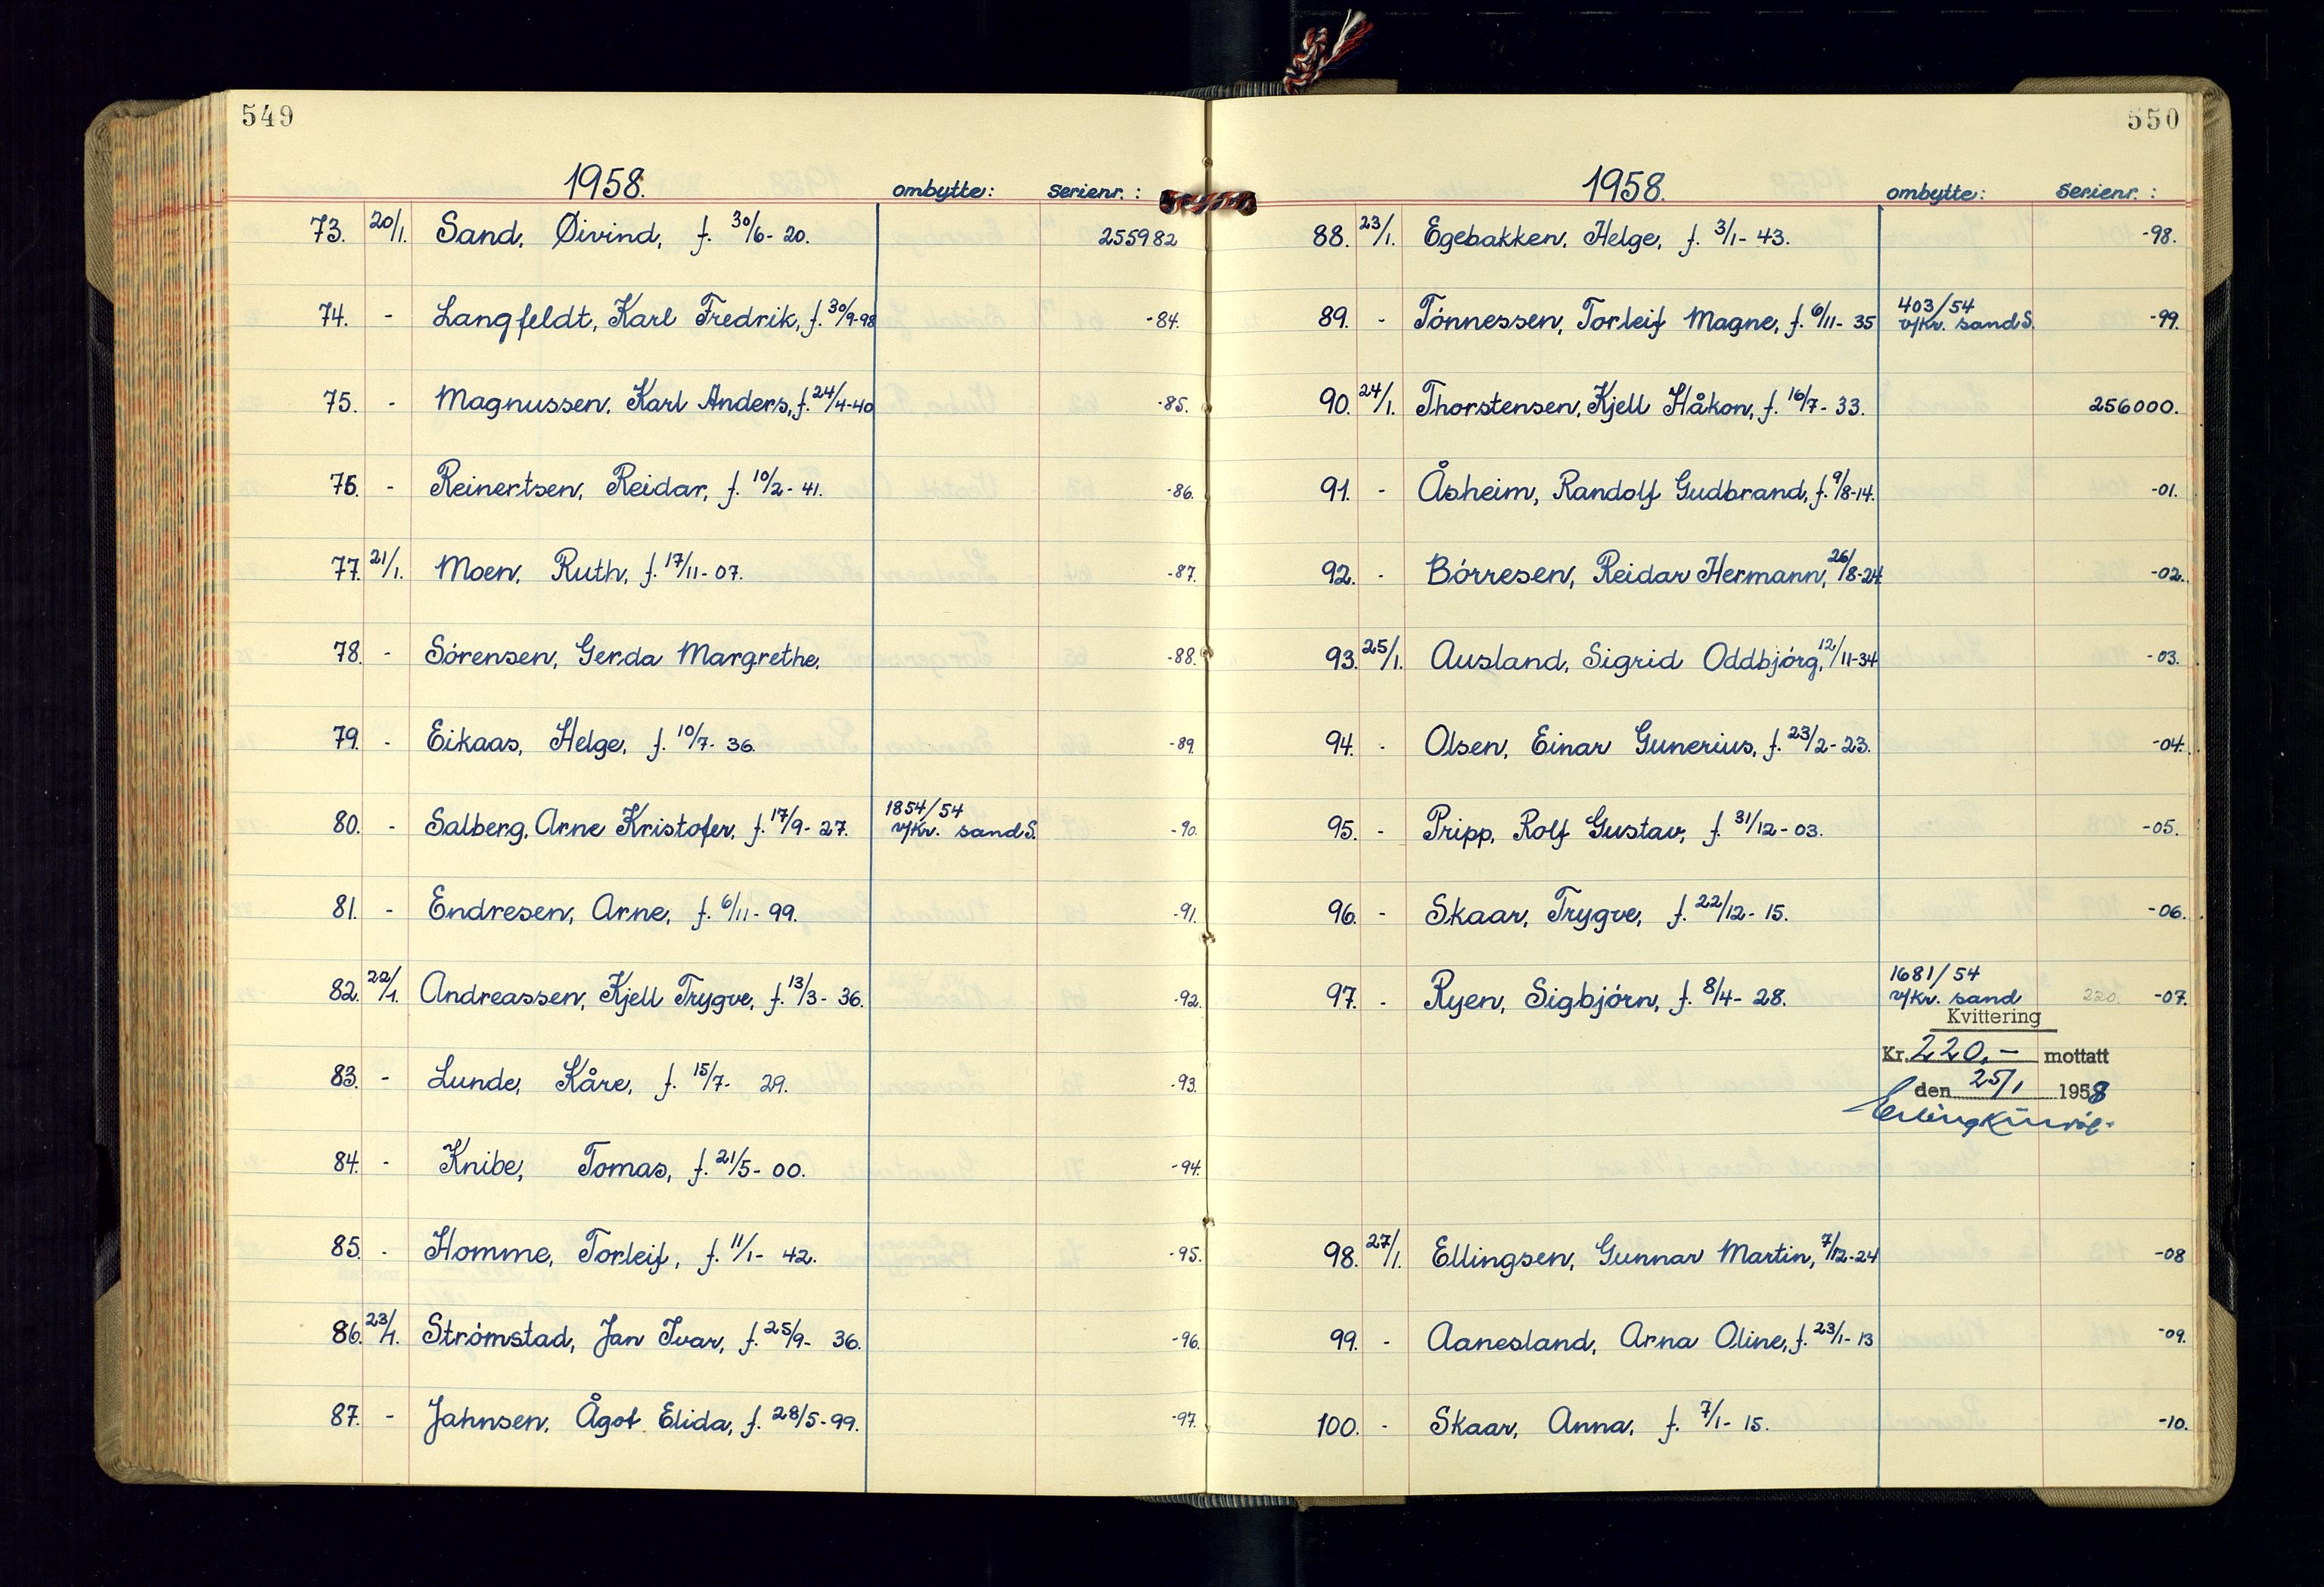 549
1958. ombytte: serienr.:
73. 20/1. Sand, Øivind, f. 30/6-20. 255982
74. - Langfeldt, Karl Fredrik, f. 30/9-98 -84.
75. - Magnussen, Karl Anders, f. 24/4-40 -85.
76. - Reinertsen, Reidar, f. 10/2-41. -86.
77. 21/1. Moen, Ruth, f. 17/11-07. -87.
78. - Sórensen, Gerda Margrethe. -88.
79. - Eikaas, Helge, f. 10/7-36. -89.
80. - Salberg, Arne Kristofer, f. 17/9-27. 1854/54 -90.
v/Kr. sand S.
81. - Endresen, Arne, f. 6/11-99. -91.
82. 22/1. Andreassen, Kjell Trygve, f. 13/3-36. -92.
83. - Lunde, Kåre, f. 15/7-29. -93.
84. - Knibe, Tomas, f. 21/5-00. -94.
85. - Homme, Torleif, f. 11/1-42. -95.
86. 23/1. Strómstad, Jan Ivar, f. 25/9-36. -96.
87. - Jahnsen, Ågot Elida, f. 28/5-99. -97.
550
1958. ombytte: serienr.:
88. 23/1. Egebakken, Helge, f. 3/1-43. -98.
89. - Tónnessen, Torleif Magne, f. 6/11-35 403/54 -99.
v/Kr. sand S.
90. 24/1. Thorstensen, Kjell Håkon, f. 16/7-33. 256000.
91. - Åsheim, Randolf Gudbrand, f. 9/8-14. -01.
92. - Bórresen, Reidar Hermann, 26/8-24 -02.
93. 25/1. Ausland, Sigrid Oddbjórg, 12/11-34 -03.
94. - Olsen, Einar Gunerius, f. 23/2-23. -04.
95. - Pripp, Rolf Gustav, f. 31/12-03. -05.
96. - Skaar, Trygve, f. 22/12-15. -06.
97. - Ryen, Sigbjórn, f. 8/4-28. 1681/54 220. -07.
v/Kr. sand
Kvittering
Kr. 220,- mottatt
den 25/1 1958
98. 27/1. Ellingsen, Gunnar Martin, 7/12-24 -08
99. - Aanesland, Arna Oline, f. 23/1-13 -09.
100. - Skaar, Anna, f. 7/1-15. -10.